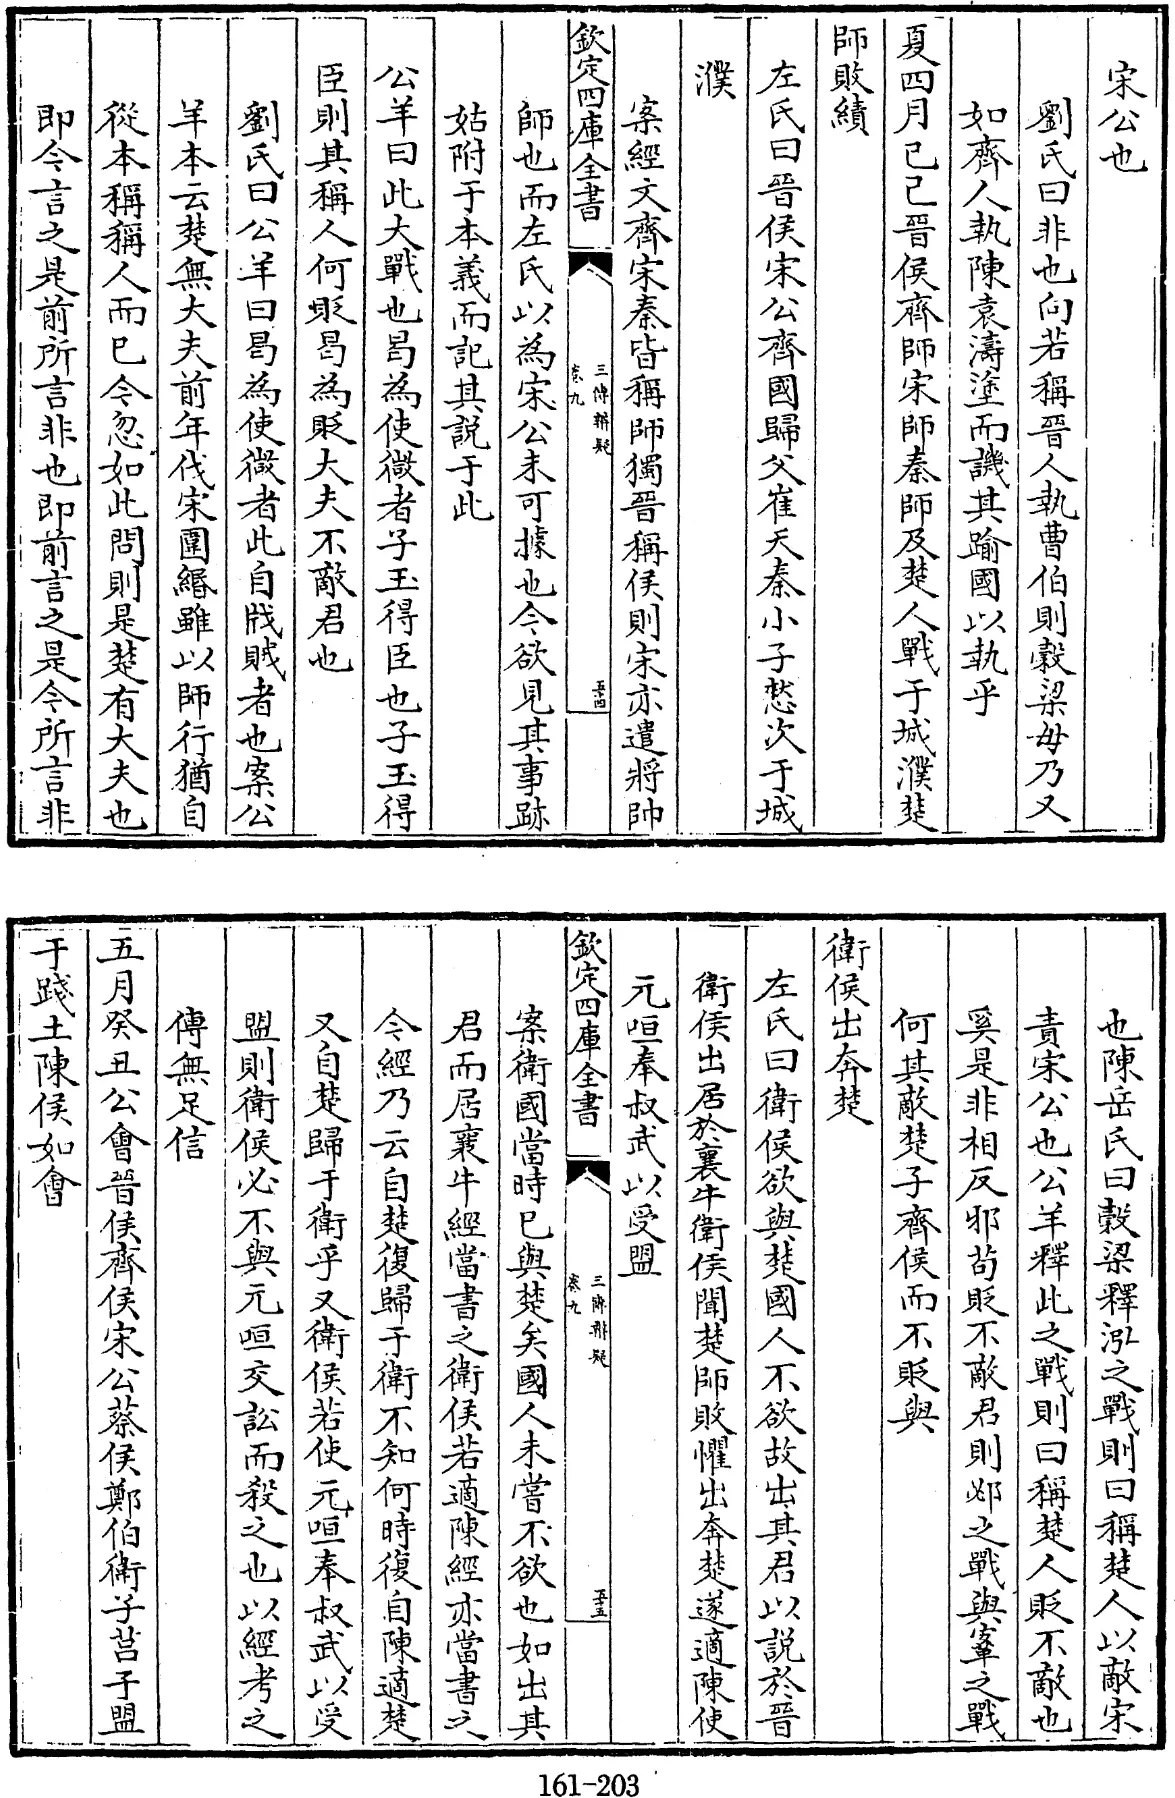 宋公也
劉氏曰非也向若稱晉人執曹伯則穀梁毋乃又
如齊人執陳袁濤塗而譏其踰國以執乎
夏四月己巳晉侯齊師宋師秦師及楚人戰于城濮楚
師敗績
左氏曰晉侯宋公齊國歸父崔夭秦小子憖次于城
濮
案經文齊宋秦皆稱師獨晉稱侯則宋亦遣將帥
欽定四庫全書
三傳辨疑
卷九
五十四
師也而左氏以為宋公未可據也今欲見其事跡
姑附于本義而記其說于此
公羊曰此大戰也曷為使微者子玉得臣也子玉得
臣則其稱人何貶曷為貶大夫不敵君也
劉氏曰公羊曰曷為使微者此自戕賊者也案公
羊本云楚無大夫前年伐宋圍緡雖以師行猶自
從本稱稱人而已今忽如此問則是楚有大夫也
即今言之是前所言非也即前言之是今所言非
也陳岳氏曰穀梁釋泓之戰則曰稱楚人以敵宋
責宋公也公羊釋此之戰則曰稱楚人貶不敵也
奚是非相反邪苟貶不敵君則邲之戰與鞌之戰
何其敵楚子齊侯而不貶與
衛侯出奔楚
左氏曰衛侯欲與楚國人不欲故出其君以說於晉
衛侯出居於襄牛衛侯聞楚師敗懼出奔楚遂適陳使
元咺奉叔武以受盟
欽定四庫全書
三傳辨疑
卷九
五十五
案衛國當時已與楚矣國人未嘗不欲也如出其
君而居襄牛經當書之衛侯若適陳經亦當書之
今經乃云自楚復歸于衛不知何時復自陳適楚
又自楚歸于衛乎又衛侯若使元咺奉叔武以受
盟則衛侯必不與元咺交訟而殺之也以經考之
傳無足信
五月癸丑公會晉侯齊侯宋公蔡侯鄭伯衛子莒子盟
于踐土陳侯如會
161-203